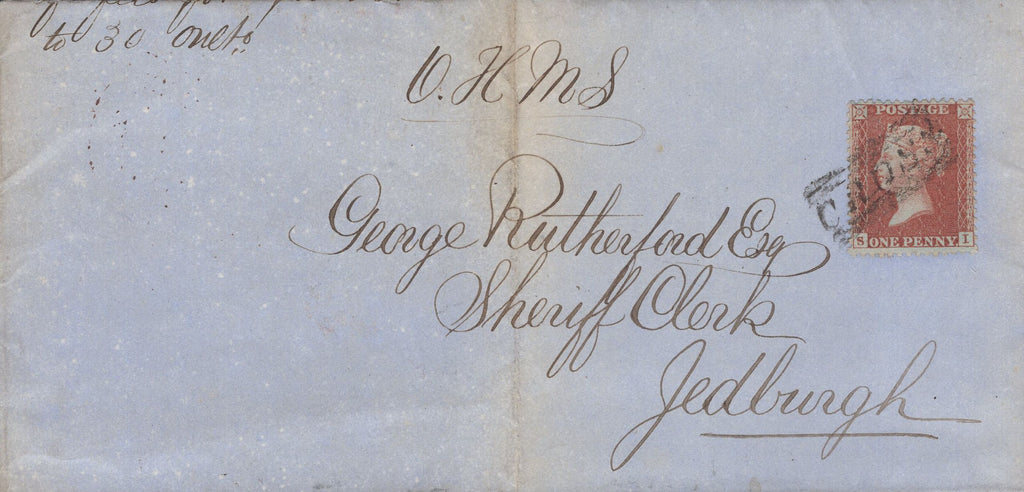 to 30 Oncts.
O. H M S
George Rutherford Esq
Sheriff Clerk
Jedburgh
POSTAGE
S ONE PENNY I